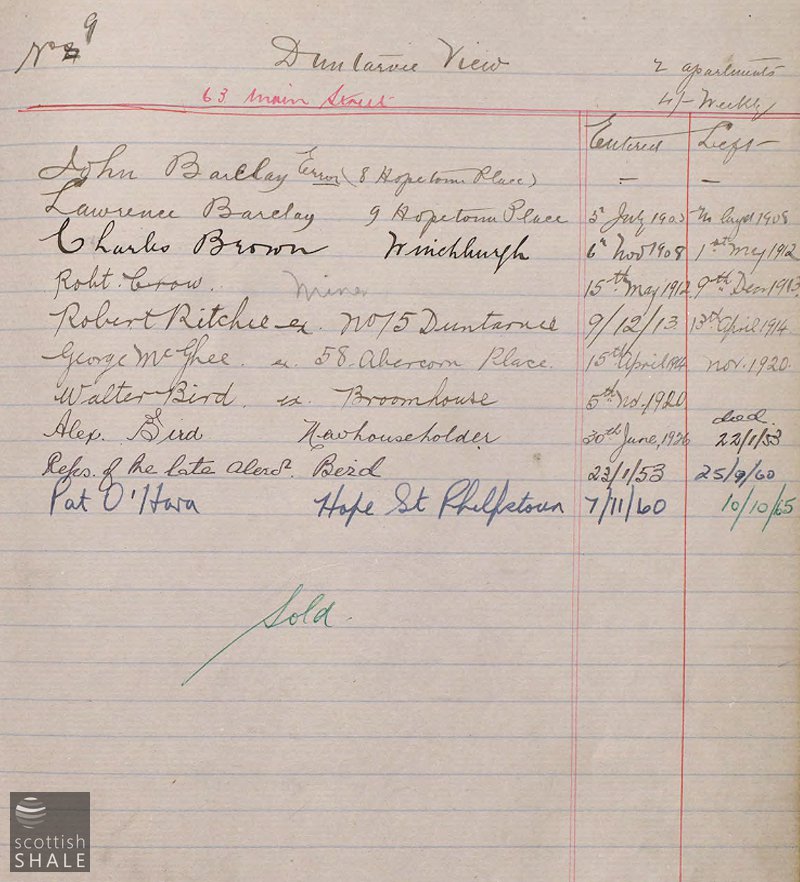 No 9
Duntarvie View
2 apartments
63 Main Street
4/- Weekly
Entered Left
John Barclay Error (8 Hopetoun Place) — —
Lawrence Barclay 9 Hopetoun Place 5 July 1905 1908
Charles Brown Winchburgh 6th Nov 1908 1st May 1912
Robt. Crow. Miner 15th May 1912 9th Decr 1913
Robert Ritchie ex. No 75 Duntarvie 9/12/13 13th April 1914
George McGhee. ex. 58. Abercorn Place. 15th April 1914 Nov. 1920.
Walter Bird. ex. Broomhouse 5th No. 1920
Alex. Bird Newhouseholder 30th June, 1926 died 22/1/53
Reps. of the late Alexr. Bird 22/1/53 25/9/60
Pat O'Hara Hope St Philpstoun 7/11/60 10/10/65
Sold.
scottish
SHALE